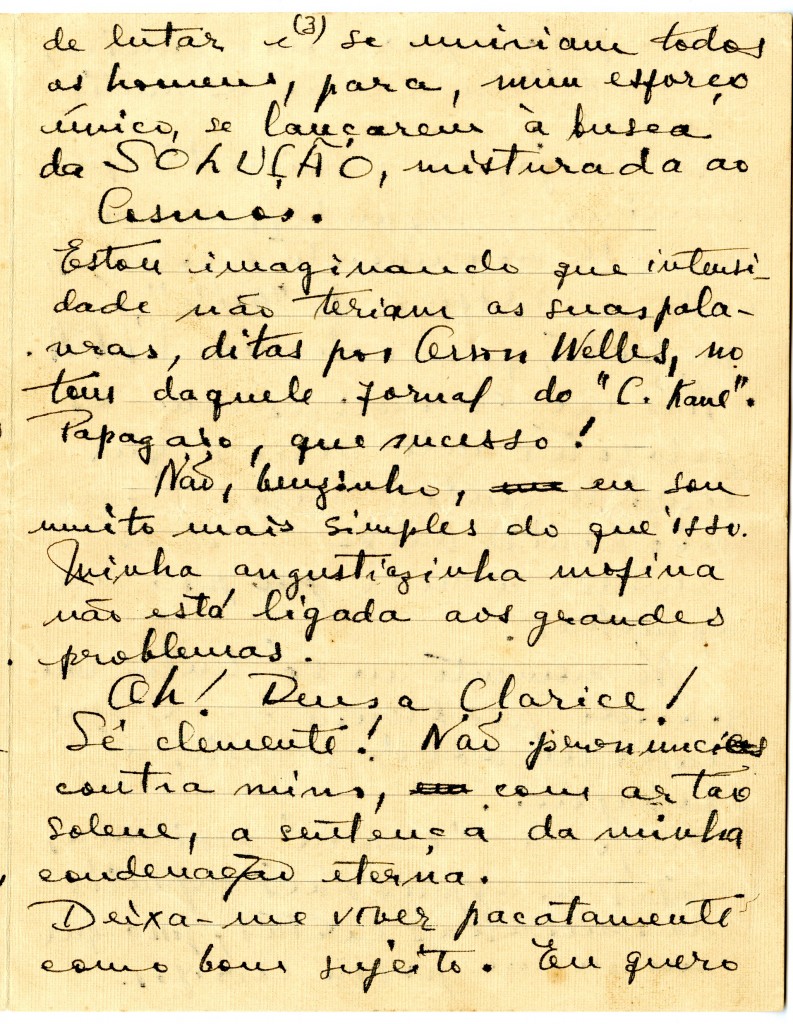 (3)
de lutar e se uniriam todos
os homens, para, num esforço
único, se lançarem à busca
da SOLUÇÃO, misturada ao
Cosmos.
Estou imaginando que intensi-
dade não teriam as suas pala-
vras, ditas por Orson Welles, no
tom daquele jornal do "C. Kane".
Papagaio, que sucesso!
Não, benzinho, eu sou
muito mais simples do que isso.
Minha angustiazinha mofina
não está ligada aos grandes
problemas.
Oh! Deusa Clarice!
Sê clemente! Não pronuncies
contra mim, com ar tão
solene, a sentença da minha
condenação eterna.
Deixa-me viver pacatamente
como bom sujeito. Eu quero